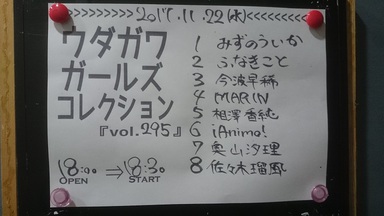 >>>>>>>>>> 2017.11.22(水) <<<<<<<<<<
ウダガワ
ガールズ
コレクション
『vol.295』
18:00 ⇒ 18:30
OPEN START
1 みずのういか
2 ふなきこと
3 今波早稀
4 MARIN
5 相澤香純
6 iAnimo!
7 奥山汐理
8 佐々木瑠風